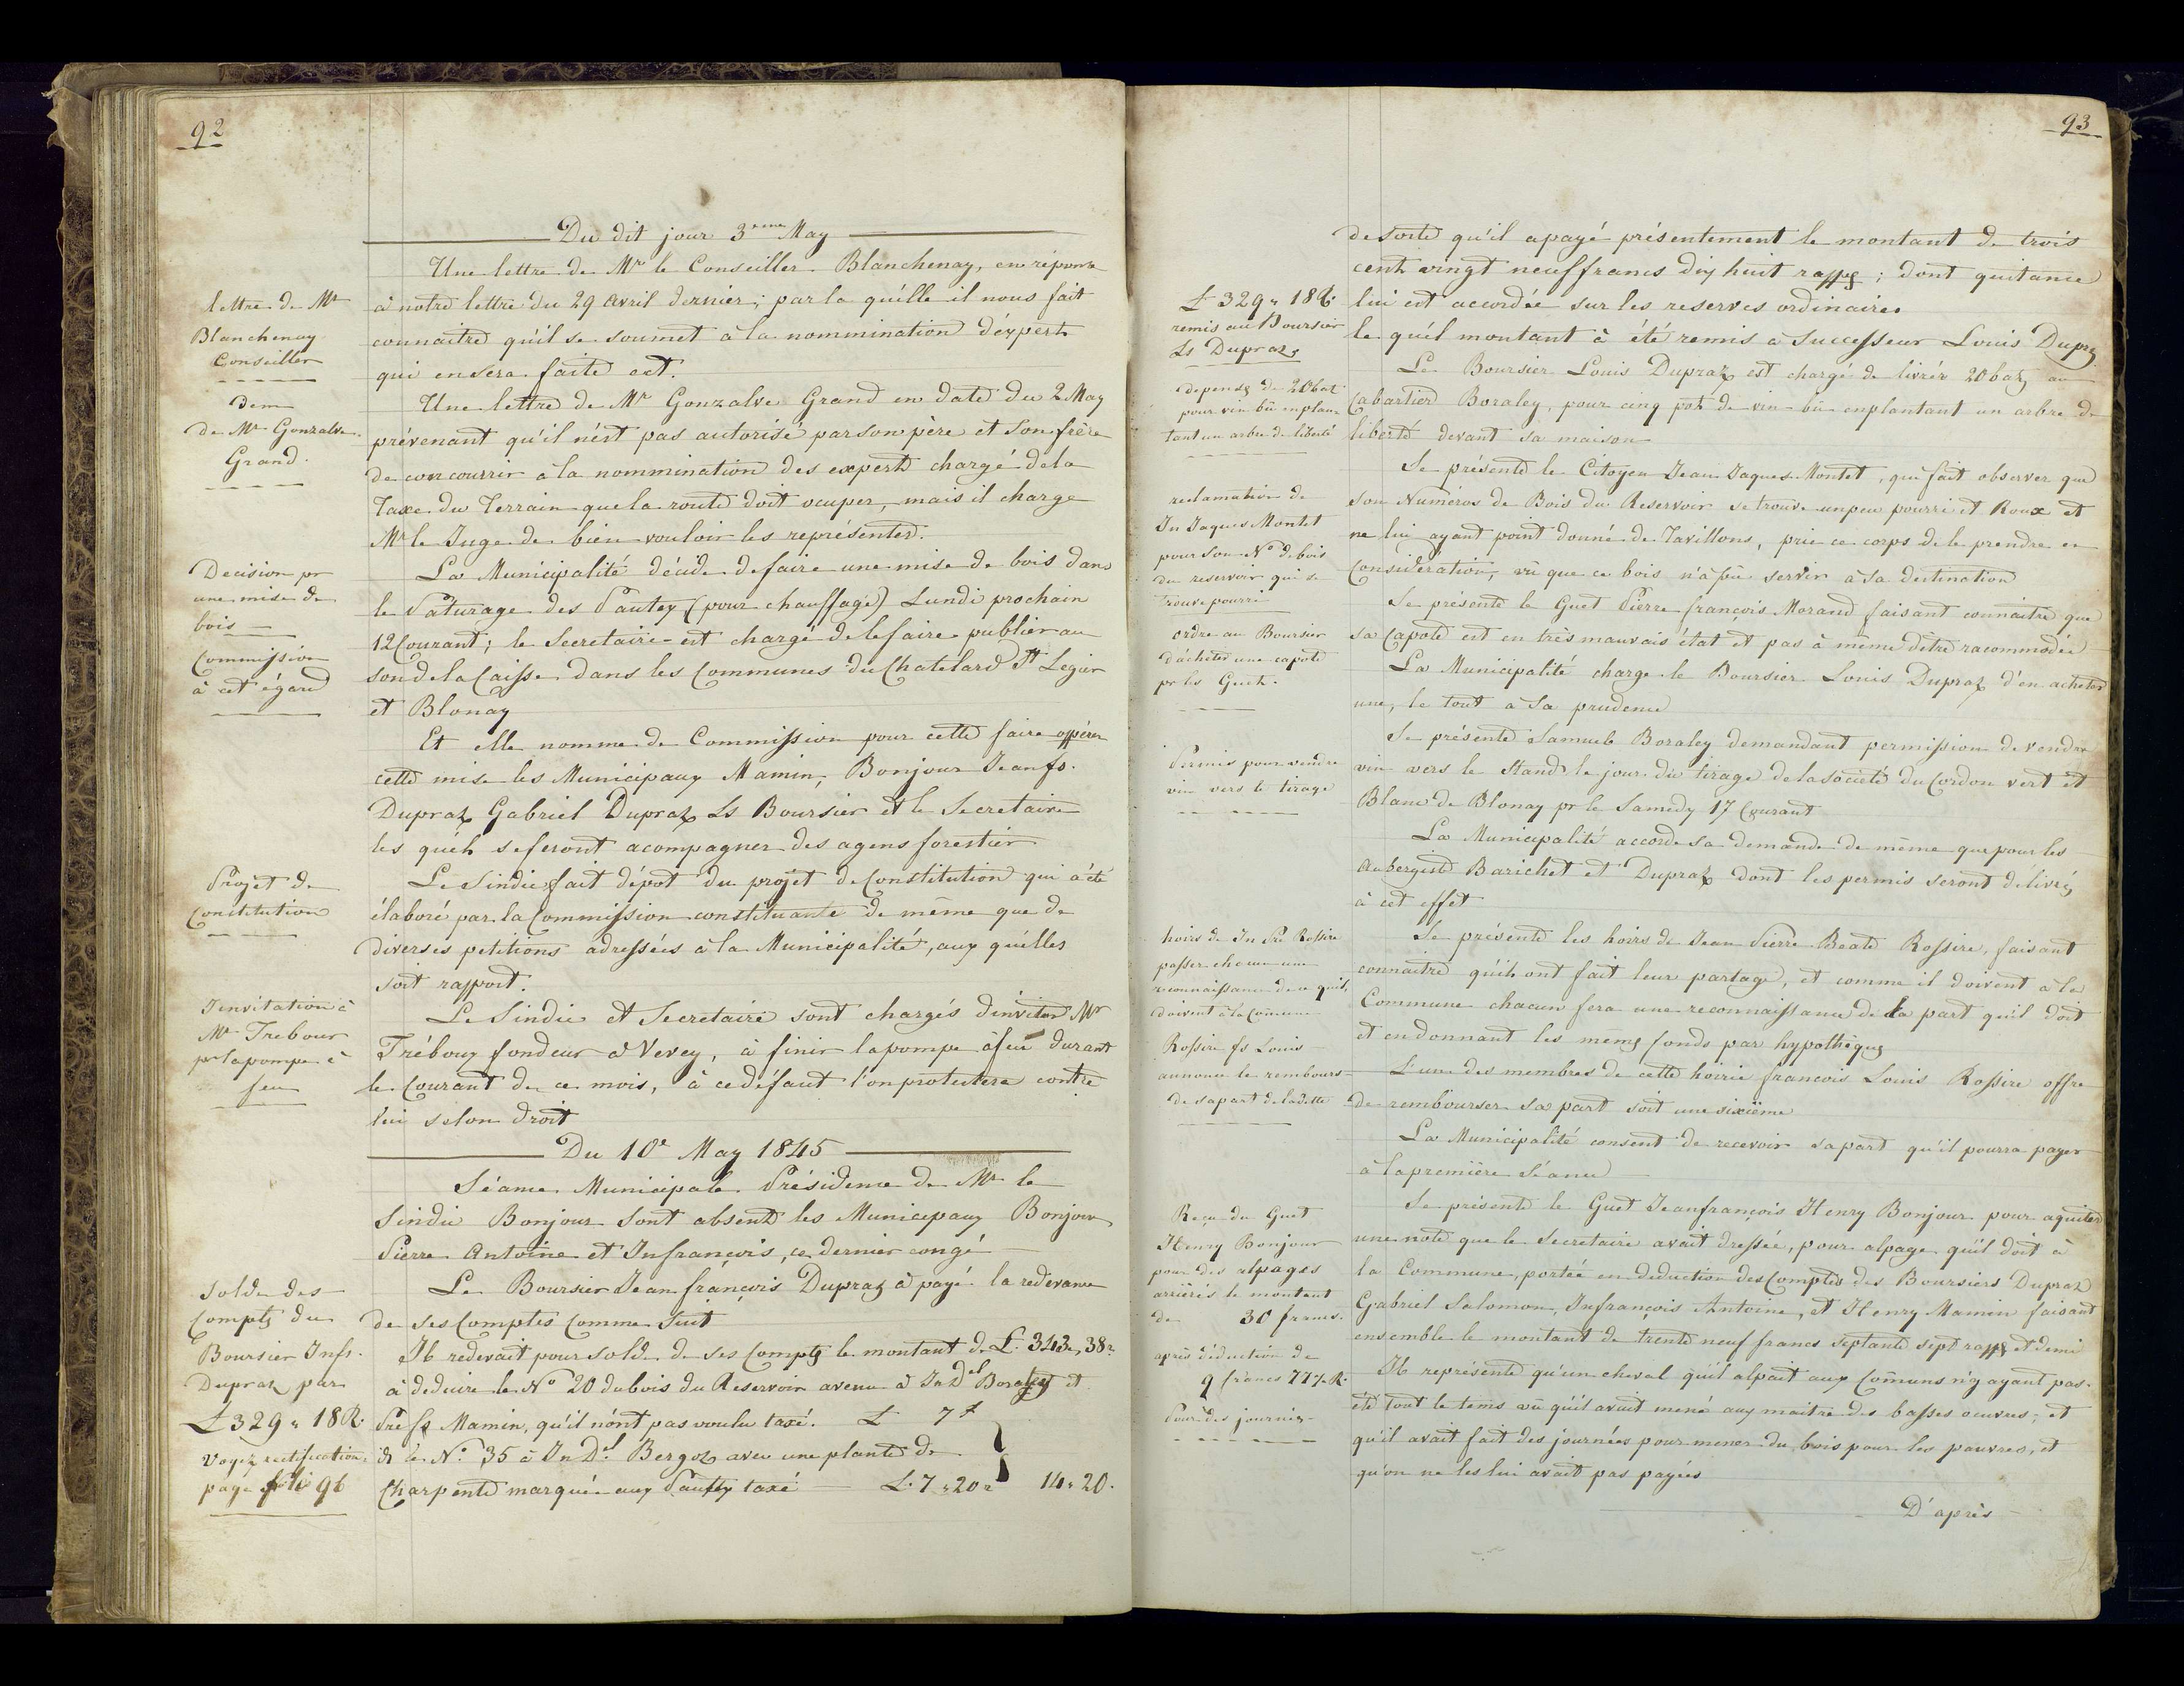 92
Du dit jour 3eme May
Une lettre de Mr le Conseiller Blanchenay, en réponse
lettre de Mr
Blanchenay
Conseiller
à notre lettre du 29 avril dernier; par la qu'elle il nous fait
connaitre qu'il se soumet à la nommination d'expert
qui en sera faite ect.
Dem
de Mr Gonzalve
Grand.
Une lettre de Mr Gonzalve Grand en date du 2 May
prévenant qu'il n'ést pas autorisé par son père et son frère
de concourrir à la nommination des experts chargé de la
Taxe du Terrain que la route doit ocuper, mais il charge
Mr le Juge de bien vouloir les représenter.
Decision pr
une mise de
bois
Commission
à cet égard
La Municipalité décide de faire une mise de bois dans
le Paturage des Pautex (pour chauffage) Lundi prochain
12 Courant; le Secretaire est chargé de le faire publier au
son de la Caisse dans les Communes du Chatelard St Legier
et Blonay
Et elle nomme de Commission pour cette faire oppérer
cette mise les Municipaux Mamin, Bonjour Jean fs.
Dupraz Gabriel Dupraz Ls Boursier et le Secretaire
les quels se feront acompagner des agens forestier
Projet de
Constitution
Le Sindic fait dépot du projet de Constitution qui a été
élaboré par la Commission constituante de même que de
diverses petitions adressées à la Municipalité, aux qu'elles
soit rapport.
Invitation à
Mr Trebour
pr la pompe à
feu
Le Sindic et Secretaire sont chargés d'inviter Mr
Tréboux fondeur à Vevey, à finir la pompe à feu durant
le Courant de ce mois, à ce défaut l'on protestera contre
lui selon droit
Du 10e May 1845
Séance Municipale Présidence de Mr le
Sindic Bonjour sont absents les Municipaux Bonjour
Pierre Antoine et Jn françois, ce dernier congé
Solde des
Compts du
Boursier Jn fs.
Dupraz par
£ 329 " 18 R.
Voyez rectification
page 96
Le Boursier Jean françois Dupraz à payé la redevance
de ses Comptes Comme Suit
Il redevait pour solde de ses Compts le montant de £. 343 " 38 "
à deduire le No 20 du bois du Reservoir avenu à Jn Del Boraley et
Pre fs Mamin, qu'il n'ont pas voulu taxé. £ 7 "
& le No. 35 à Jn Dl. Bergoz avec une plante de
Charpente marquée aux Pautex taxé £. 7 " 20 " 14 " 20.
93
de sorte qu'il a payé présentement le montant de trois
cent vingt neuf francs dix huit rapps; dont quitance
lui est accordée sur les reserves ordinaires
£ 329 " 18 R.
remis au Boursier
Ls Dupraz
le quel montant à été remis a Successeur Louis Dupraz
depense de 20 batz
pour vin bû en plan-
tant un arbre de liberté
Le Boursier Louis Dupraz est chargé de livrér 20 batz au
Cabartier Boraley, pour cinq pots de vin bû en plantant un arbre de
liberté devant sa maison
reclamation de
Jn Jaques Montet
pour son No de bois
du reservoir qui se
trouve pourri
Se présente le Citoyen Jean Jaques Montet, qui fait observer que
son Numéros de Bois du Reservoir se trouve un peu pourri et Roux et
ne lui ayant point donné de Tavillons, prie ce corps de le prendre en
Considération, vû que ce bois n'a pû servir à sa destination
ordre au Boursier
d'acheter une capote
pr les Guets.
Se présente le Guet Pierre françois Morand faisant connaitre que
sa Capote est en très mauvais état et pas à même d'être racommodée
La Municipalité charge le Boursier Louis Dupraz d'en acheter
une, le tout a sa prudence
Permis pour vendre
vin vers le tirage
Se présente Samuel Boraley demandant permission de vendre
vin vers le Stand le jour du tirage de la société du Cordon vert et
Blanc de Blonay pr le Samedy 17 Courant
La Municipalité accorde sa demande de même que pour les
Aubergiste Barichet et Dupraz dont les permis seront delivrés
à cet effet
hoirs de Jn Pre Rossire
passer chacun une
reconnaissance de ce qu'ils
doivent à la Comune
Se présente les hoirs de Jean Pierre Beate Rossire, faisant
connaitre qu'ils ont fait leur partage, et comme il doivent a la
Commune chacun fera une reconnaissance de la part qu'il doit
et en donnant les mems fonds par hypothèques
Rossire fs Louis
annonce le rembours-
de sa part de la dette
L'un des membres de cette hoirie francois Louis Rossire offre
de rembourser sa part soit une sixième
La Municipalité consent de recevoir sa part qu'il pourra payer
à la première Séance
Recu du Guet
Henry Bonjour
pour des alpages
arriérés le montant
de 30 francs.
après déduction de
9 francs 77½ R.
Pour des journées
Se présente le Guet Jean françois Henry Bonjour pour aquiter
une note que le Secretaire avait dressée, pour alpage qu'il doit à
la Commune, portée en deduction des Comptes des Boursiers Dupraz
Gabriel Salomon, Jn françois Antoine, et Henry Mamin faisant
ensemble le montant de trente neuf francs septante sept rapps et demi
Il représente qu'un cheval qu'il alpait aux Comuns n'y ayant pas
été tout le tems vû qu'il avait mené aux maitre des basses oeuvres, et
qu'il avait fait des journées pour mener du bois pour les pauvres, et
qu'on ne les lui avait pas payées
D'après